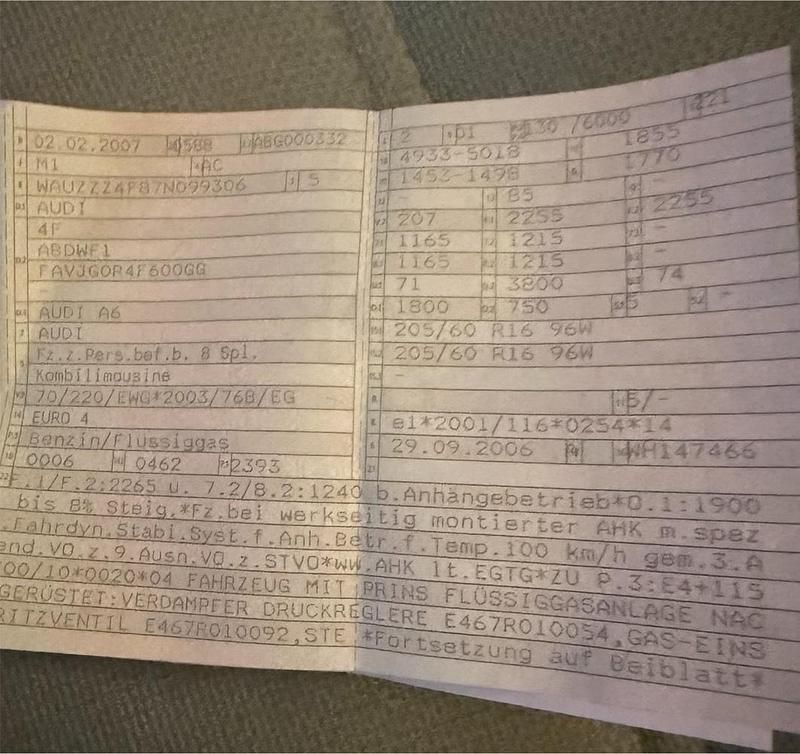 02.02.2007 0588 ABG000332
M1 AC
WAUZZZ4F87N099306 5
AUDI
4F
ABDWF1
FAVJGOR4F600GG
-
AUDI A6
AUDI
Fz.z.Pers.bef.b. 8 Spl.
Kombilimousine
70/220/EWG*2003/76B/EG
EURO 4
Benzin/Flüssiggas
0006 0462 2393
2 P1 130 /6000 221
4933-5018 1855
1453-1498 1770
- 85 -
207 2255 2255
1165 1215 -
1165 1215 -
71 3800 74
1800 750 5 -
205/60 R16 96W
205/60 R16 96W
-
5/-
e1*2001/116*0254*14
29.09.2006 WH147466
F.1/F.2:2265 u. 7.2/8.2:1240 b.Anhängebetrieb*O.1:1900
bis 8% Steig.*Fz.bei werkseitig montierter AHK m.spez
.Fahrdyn.Stabi.Syst.f.Anh.Betr.f.Temp.100 km/h gem.3.A
end.VO.z.9.Ausn.VO.z.STVO*ww.AHK lt.EGTG*ZU P.3:E4*115
00/10*0020*04 FAHRZEUG MIT PRINS FLÜSSIGGASANLAGE NAC
GERÜSTET:VERDAMPFER DRUCKREGLERE E467R010054,GAS-EINS
RITZVENTIL E467R010092,STE *Fortsetzung auf Beiblatt*